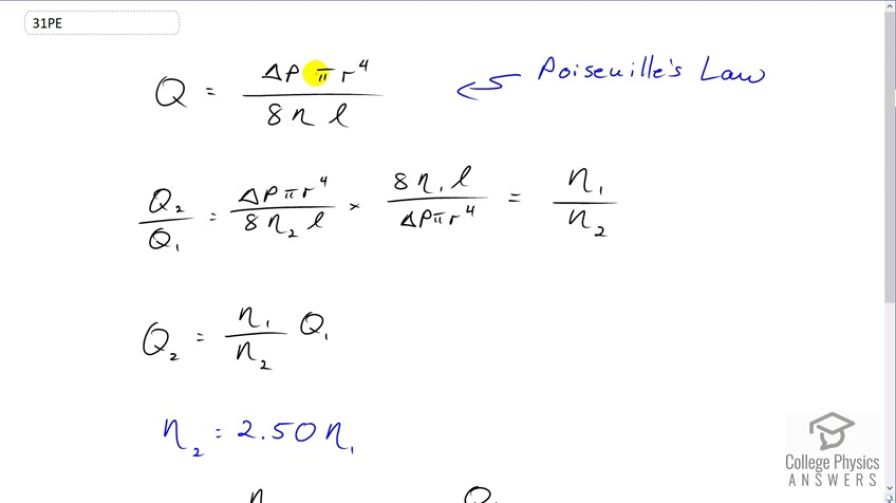 31PE
Q = ΔP π r⁴ / 8 η l
Poiseuille's Law
Q₂ / Q₁ = ΔP π r⁴ / 8 η₂ l × 8 η₁ l / ΔP π r⁴ = η₁ / η₂
Q₂ = η₁ / η₂ Q₁
η₂ = 2.50 η₁
College Physics
ANSWERS